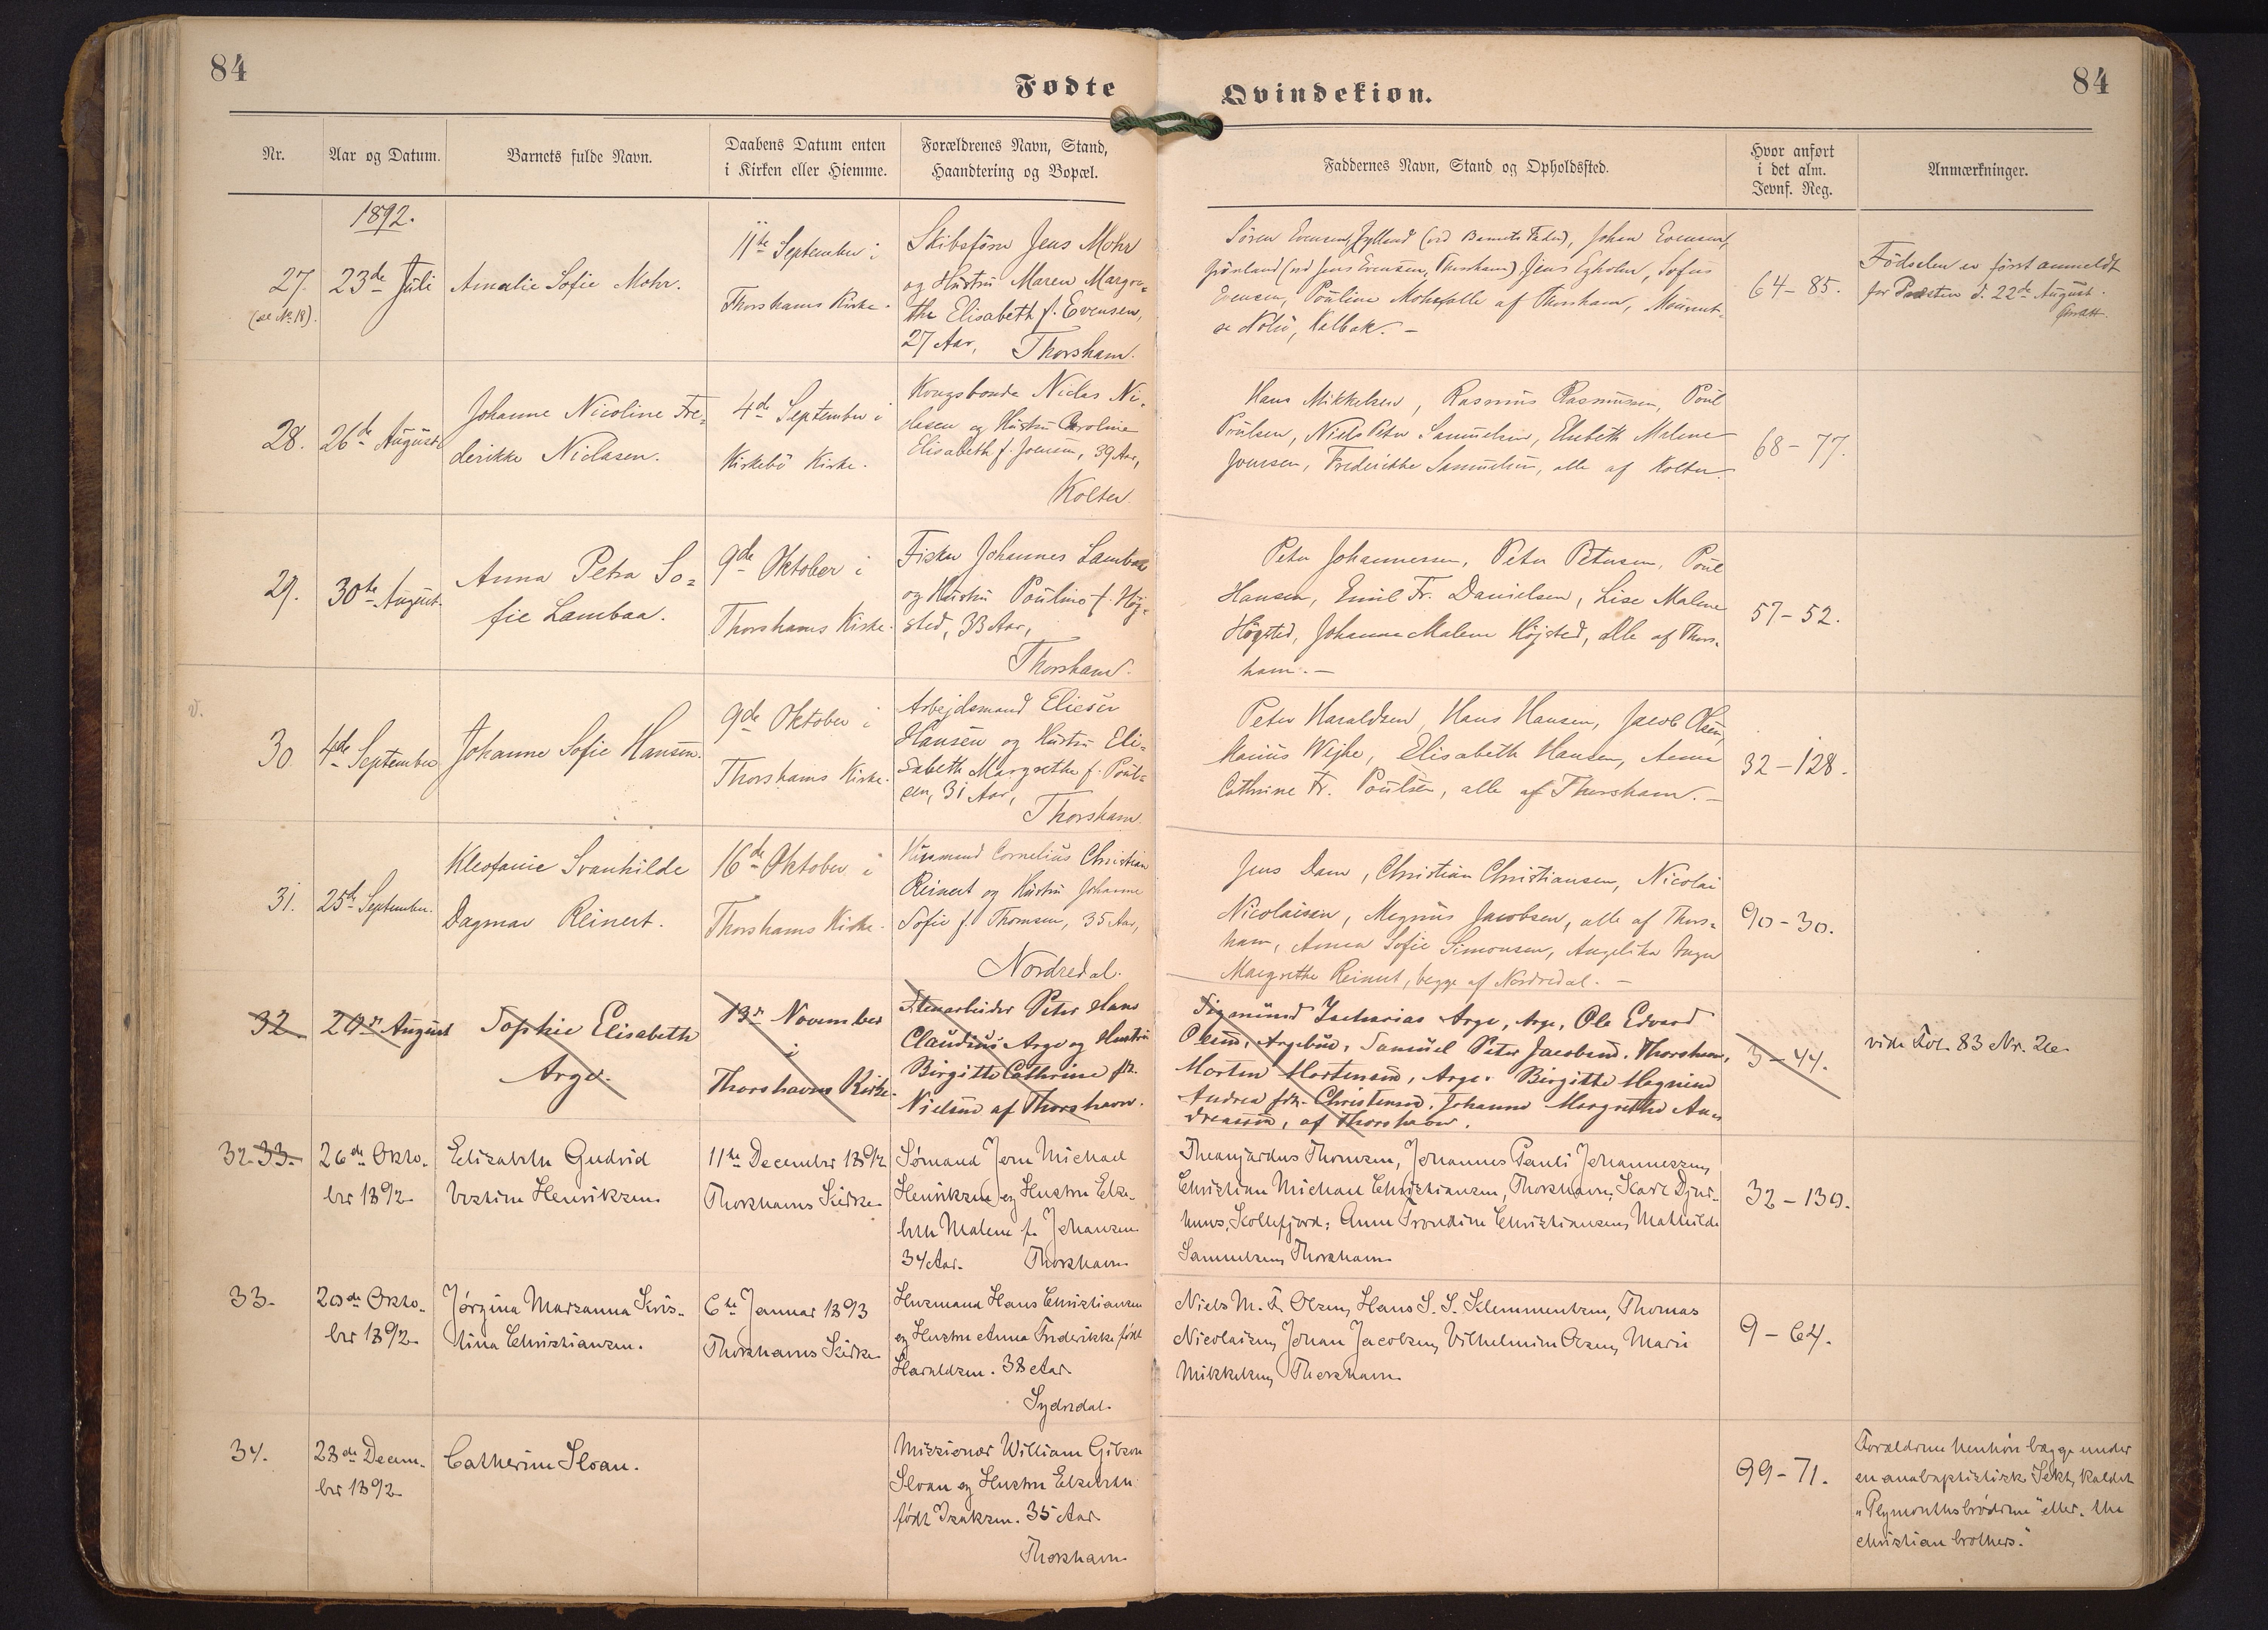 84
84
Fødte
Qvindekiøn.
Nr.
Aar og Datum.
Barnets fulde Navn.
Daabens Datum enten
i Kirken eller Hiemme.
Forældrenes Navn, Stand,
Haandtering og Bopæl.
Faddernes Navn, Stand og Opholdssted.
Hvor anført
i det alm.
Jevnf. Reg.
Anmærkninger.
1892.
27.
(se No 18).
23de Juli
Amalie Sofie Mohr.
11te September i
Thorshavns Kirke.
Skibsfører Jens Mohr
og Hustru Maren Margre-
the Elisabeth f. Evensen,
27 Aar, Thorshavn.
Sören Evensen, Jylland (ved Barnets Fader), Johan Evensen,
Grönland (ved Jens Evensen, Thorshavn), Jens Egholm, Sofus
Evensen, Pouline Mohr, alle af Thorshavn,
se Nolsö, Kalbak. –
64–85.
Födselen er först anmeldt
for Præsten d. 22de August.
28.
26de August
Johanne Nicoline Fre-
derikke Niclasen.
4de September i
Kirkebö Kirke.
Kongsbonde Niclas Ni-
clasen og Hustru Caroline
Elisabeth f. Joensen, 39 Aar,
Kolter.
Hans Mikkelsen, Rasmus Rasmussen, Poul
Poulsen, Niels Peter Samuelsen, Elsebeth Malene
Joensen, Frederikke Samuelsen, alle af Kolter.
68–77.
29.
30te August.
Anna Petra So-
fie Lambaa.
9de Oktober i
Thorshavns Kirke.
Fisker Johannes Lambaa
og Hustru Pouline f. Höj-
sted, 33 Aar,
Thorshavn.
Peter Johannesen, Peter Petersen, Poul
Hansen, Emil Fr. Danielsen, Lise Malene
Högsted, Johanna Malene Höjsted, alle af Thors-
havn. –
57–52.
v.
30
4de September
Johanne Sofie Hansen.
9de Oktober i
Thorshavns Kirke.
Arbejdsmand Elieser
Hansen og Hustru Eli-
sabeth Margrethe f. Poul-
sen, 31 Aar,
Thorshavn.
Peter Haraldsen, Hans Hansen, Jacob Olsen,
Marius Wejhe, Elisabeth Hansen, Anna
Cathrine Fr. Poulsen, alle af Thorshavn. –
32–128.
31.
25de September.
Kleofanie Svanhilde
Dagmar Reinert.
16de Oktober i
Thorshavns Kirke.
Husmand Cornelius Christian
Reinert og Hustru Johanne
Sofie f. Thomsen, 35 Aar,
Nordredal.
Jens Dam, Christian Christiansen, Nicolai
Nicolaisen, Magnus Jacobsen, alle af Thors-
havn, Anna Sofie Simonsen, Angelika Inger
Margrethe Reinert, begge af Nordredal. –
90–30.
32
29de August
Sophie Elisabeth
Arge.
13de November
i
Thorshavns Kirke.
Stenarbeider Peter Hans
Claudius Arge og Hustru
Birgitte Cathrine fdt.
Nielsen af Thorshavn.
Sigmund Zacharias Arge, Arge, Ole Edvard
Olsen, Argebud, Samuel Peter Jacobsen, Thorshavn,
Morten Mortensen, Arge. Birgitte Magnine
Andrea fdt. Christensen, Johanne Margrethe An-
dreasen, af Thorshavn.
3–44.
vide Fol. 83 Nr. 26.
32. 33.
26de Okto-
ber 1892
Elisabeth Gudrid
Vestine Henriksen
11te December 1892
Thorshavns Kirke
Sømand Jens Michael
Henriksen og Hustru Else-
beth Malene f. Johansen
34 Aar. Thorshavn
Theanjardus Thomsen, Johannes Pauli Johannessen,
Christian Michael Christiansen, Thorshavn, Karl Djur-
huus, Kollefjord; Anne Trondine Christiansen, Mathilde
Samuelsen, Thorshavn
32–130.
33.
20de Okto-
ber 1892.
Jørgina Marsanna Kris-
tina Christiansen.
6te Januar 1893
Thorshavns Kirke
Husmand Hans Christiansen
og Hustru Anna Frederikke født
Haraldsen. 38 Aar.
Sydredal.
Niels M. F. Olsen, Hans S. S. Klemmentsen, Thomas
Nicolaisen, Johan Jacobsen, Vilhelmine Olsen, Marie
Mikkelsen, Thorshavn
9–64.
34.
28de Decem-
ber 1892
Catherine Sloan.
Missionær William Gibson
Sloan og Hustru Elsebeth
født Isaksen. 35 Aar.
Thorshavn
99–71.
Forældrene henhøre begge under
en anabaptistisk Sekt, kaldet
"Plymouthsbrødrene" eller "the
christian brothers."